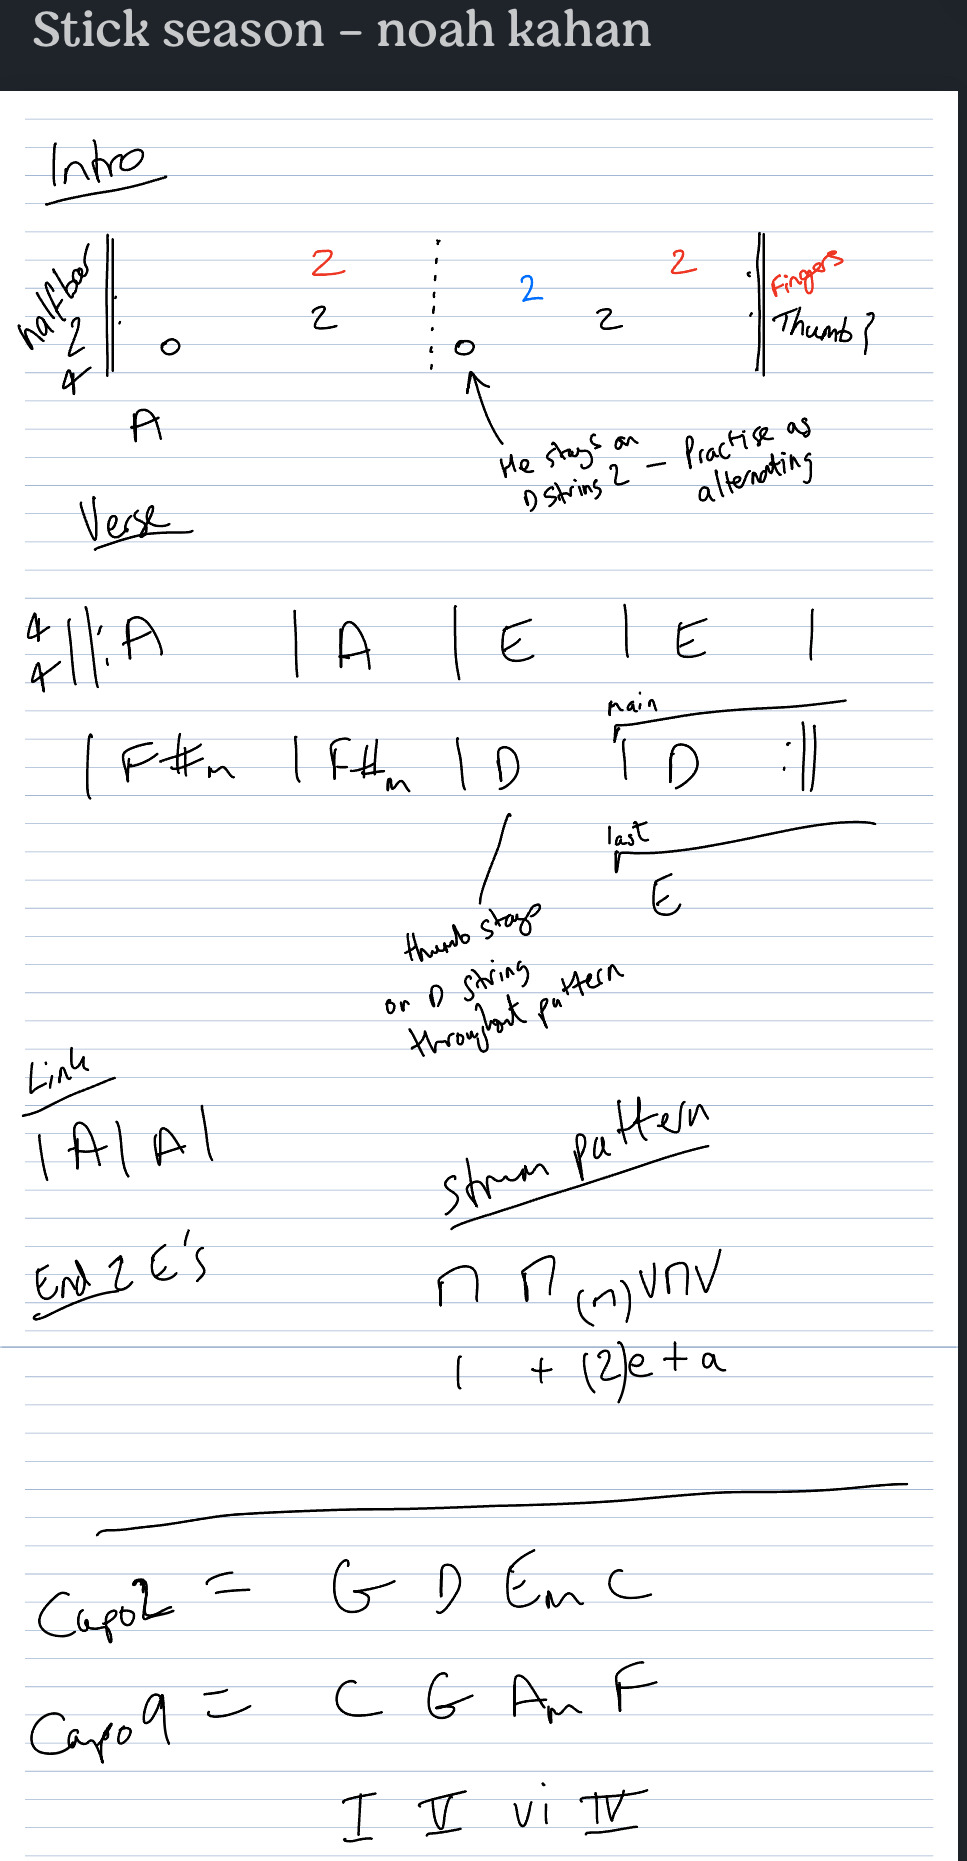 Stick season – noah kahan
Intro
2 2 Fingers
halfbar 2
2 2 Thumb?
2 0 0
4
A
He stays on
D string? – Practise as
alternating
Verse
4 ||: A | A | E | E |
4
main
| F#m | F#m | D | D :||
last
E
thumb stays
on D string
throughout pattern
Link
| A | A |
strum pattern
End 2 E's
⊓ ⊓ (⊓) V ⊓ V
1 + (2) e + a
Capo 2 = G D Em C
Capo 9 = C G Am F
I V vi IV